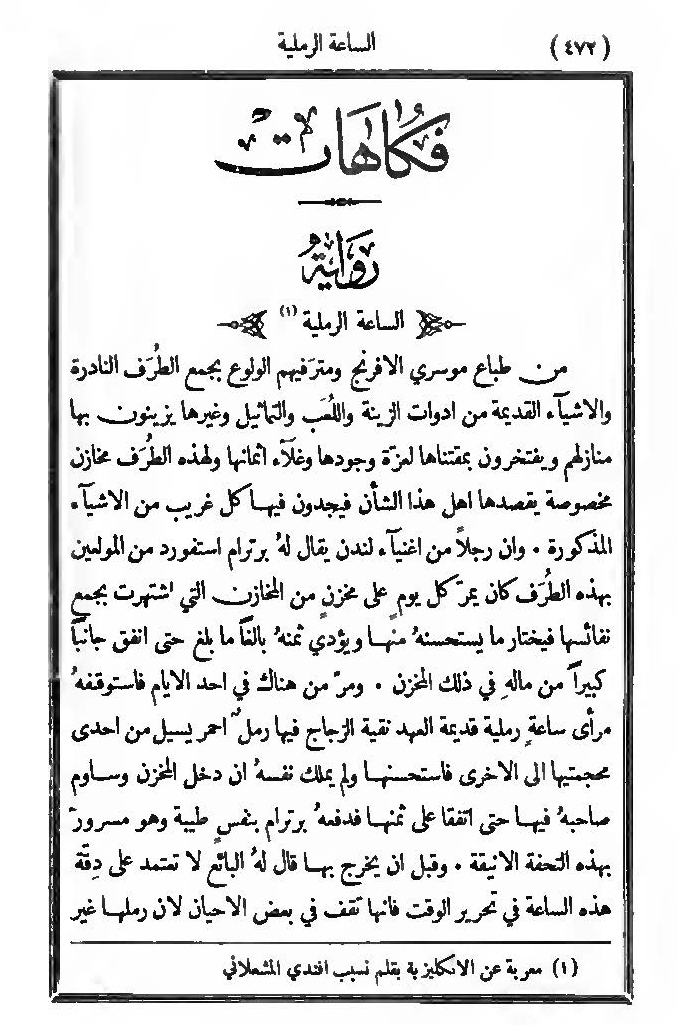 (٤٧٢) الساعة الرملية
فُكَاهَات
رِوَايَةٌ
الساعة الرملية (١)
من طباع موسري الافرنج ومترَفيهم الولوع بجمع الطُرَف النادرة
والاشيآء القديمة من ادوات الزينة واللُعَب والتماثيل وغيرها يزينون بها
منازلهم ويفتخرون بمقتناها لعزّة وجودها وغلآء اثمانها ولهذه الطُرَف مخازن
مخصوصة يقصدها اهل هذا الشأن فيجدون فيها كل غريب من الاشيآء
المذكورة . وان رجلاً من اغنيآء لندن يقال لهُ برترام استفورد من المولعين
بهذه الطُرَف كان يمرّ كل يومٍ على مخزنٍ من المخازن التي اشتهرت بجمع
نفائسها فيختار ما يستحسنهُ منها ويؤدي ثمنهُ بالغاً ما بلغ حتى انفق جانباً
كبيراً من مالهِ في ذلك المخزن . ومرّ من هناك في احد الايام فاستوقفهُ
مرأى ساعةٍ رملية قديمة العهد نقية الزجاج فيها رملٌ احمر يسيل من احدى
محجمتيها الى الاخرى فاستحسنها ولم يملك نفسهُ ان دخل المخزن وساوم
صاحبهُ فيها حتى اتفقا على ثمنها فدفعهُ برترام بنفسٍ طيبة وهو مسرورٌ
بهذه التحفة الانيقة . وقبل ان يخرج بها قال لهُ البائع لا تعتمد على دِقّة
هذه الساعة في تحرير الوقت فانها تقف في بعض الاحيان لان رملها غير
(١) معربة عن الانكليزية بقلم نسيب افندي المشعلاني